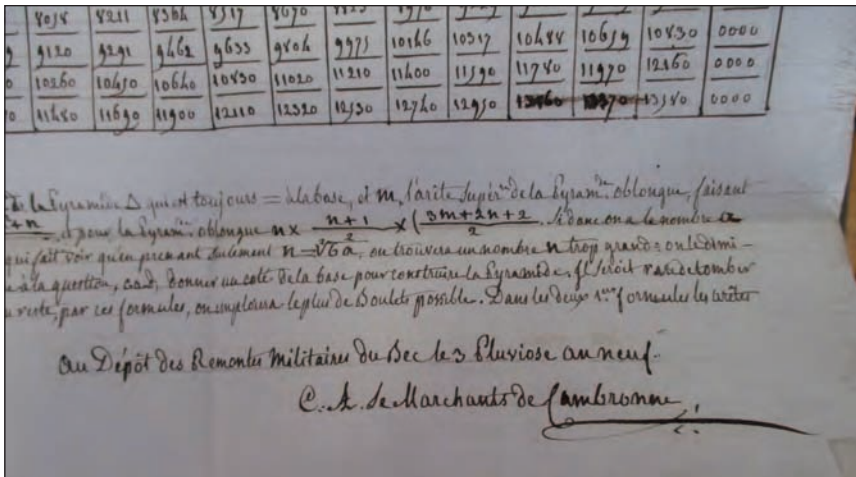 8058 8211 8364 8517 8670
9120 9291 9462 9633 9804 9975 10146 10317 10488 10659 10830 0000
10260 10450 10640 10830 11020 11210 11400 11590 11780 11970 12160 0000
11480 11690 11900 12110 12320 12530 12740 12950 13160 13370 13580 0000
de la Pyramide Δ qui est toujours = à la base, et m, l'arite supér.re de la Pyram.de oblongue, faisant
+n et pour la Pyram.de oblongue n × n+1/2 × (3m+2n+2/2. Si donc on a le nombre a
qui fait voir qu'en prenant seulement n=∛6a, on trouvera un nombre n trop grand: on le dimi-
e à la question, càd, donner un coté de la base pour construire la Pyramide. Il seroit rare de tomber
u reste, par ces formules, on emploiera le plus de Boulets possible. Dans les deux 1.eres formules les arites
au Dépôt des Remontes Militaires du Bec le 3 Pluviose an neuf.
C. A. de Marchants de Cambronne